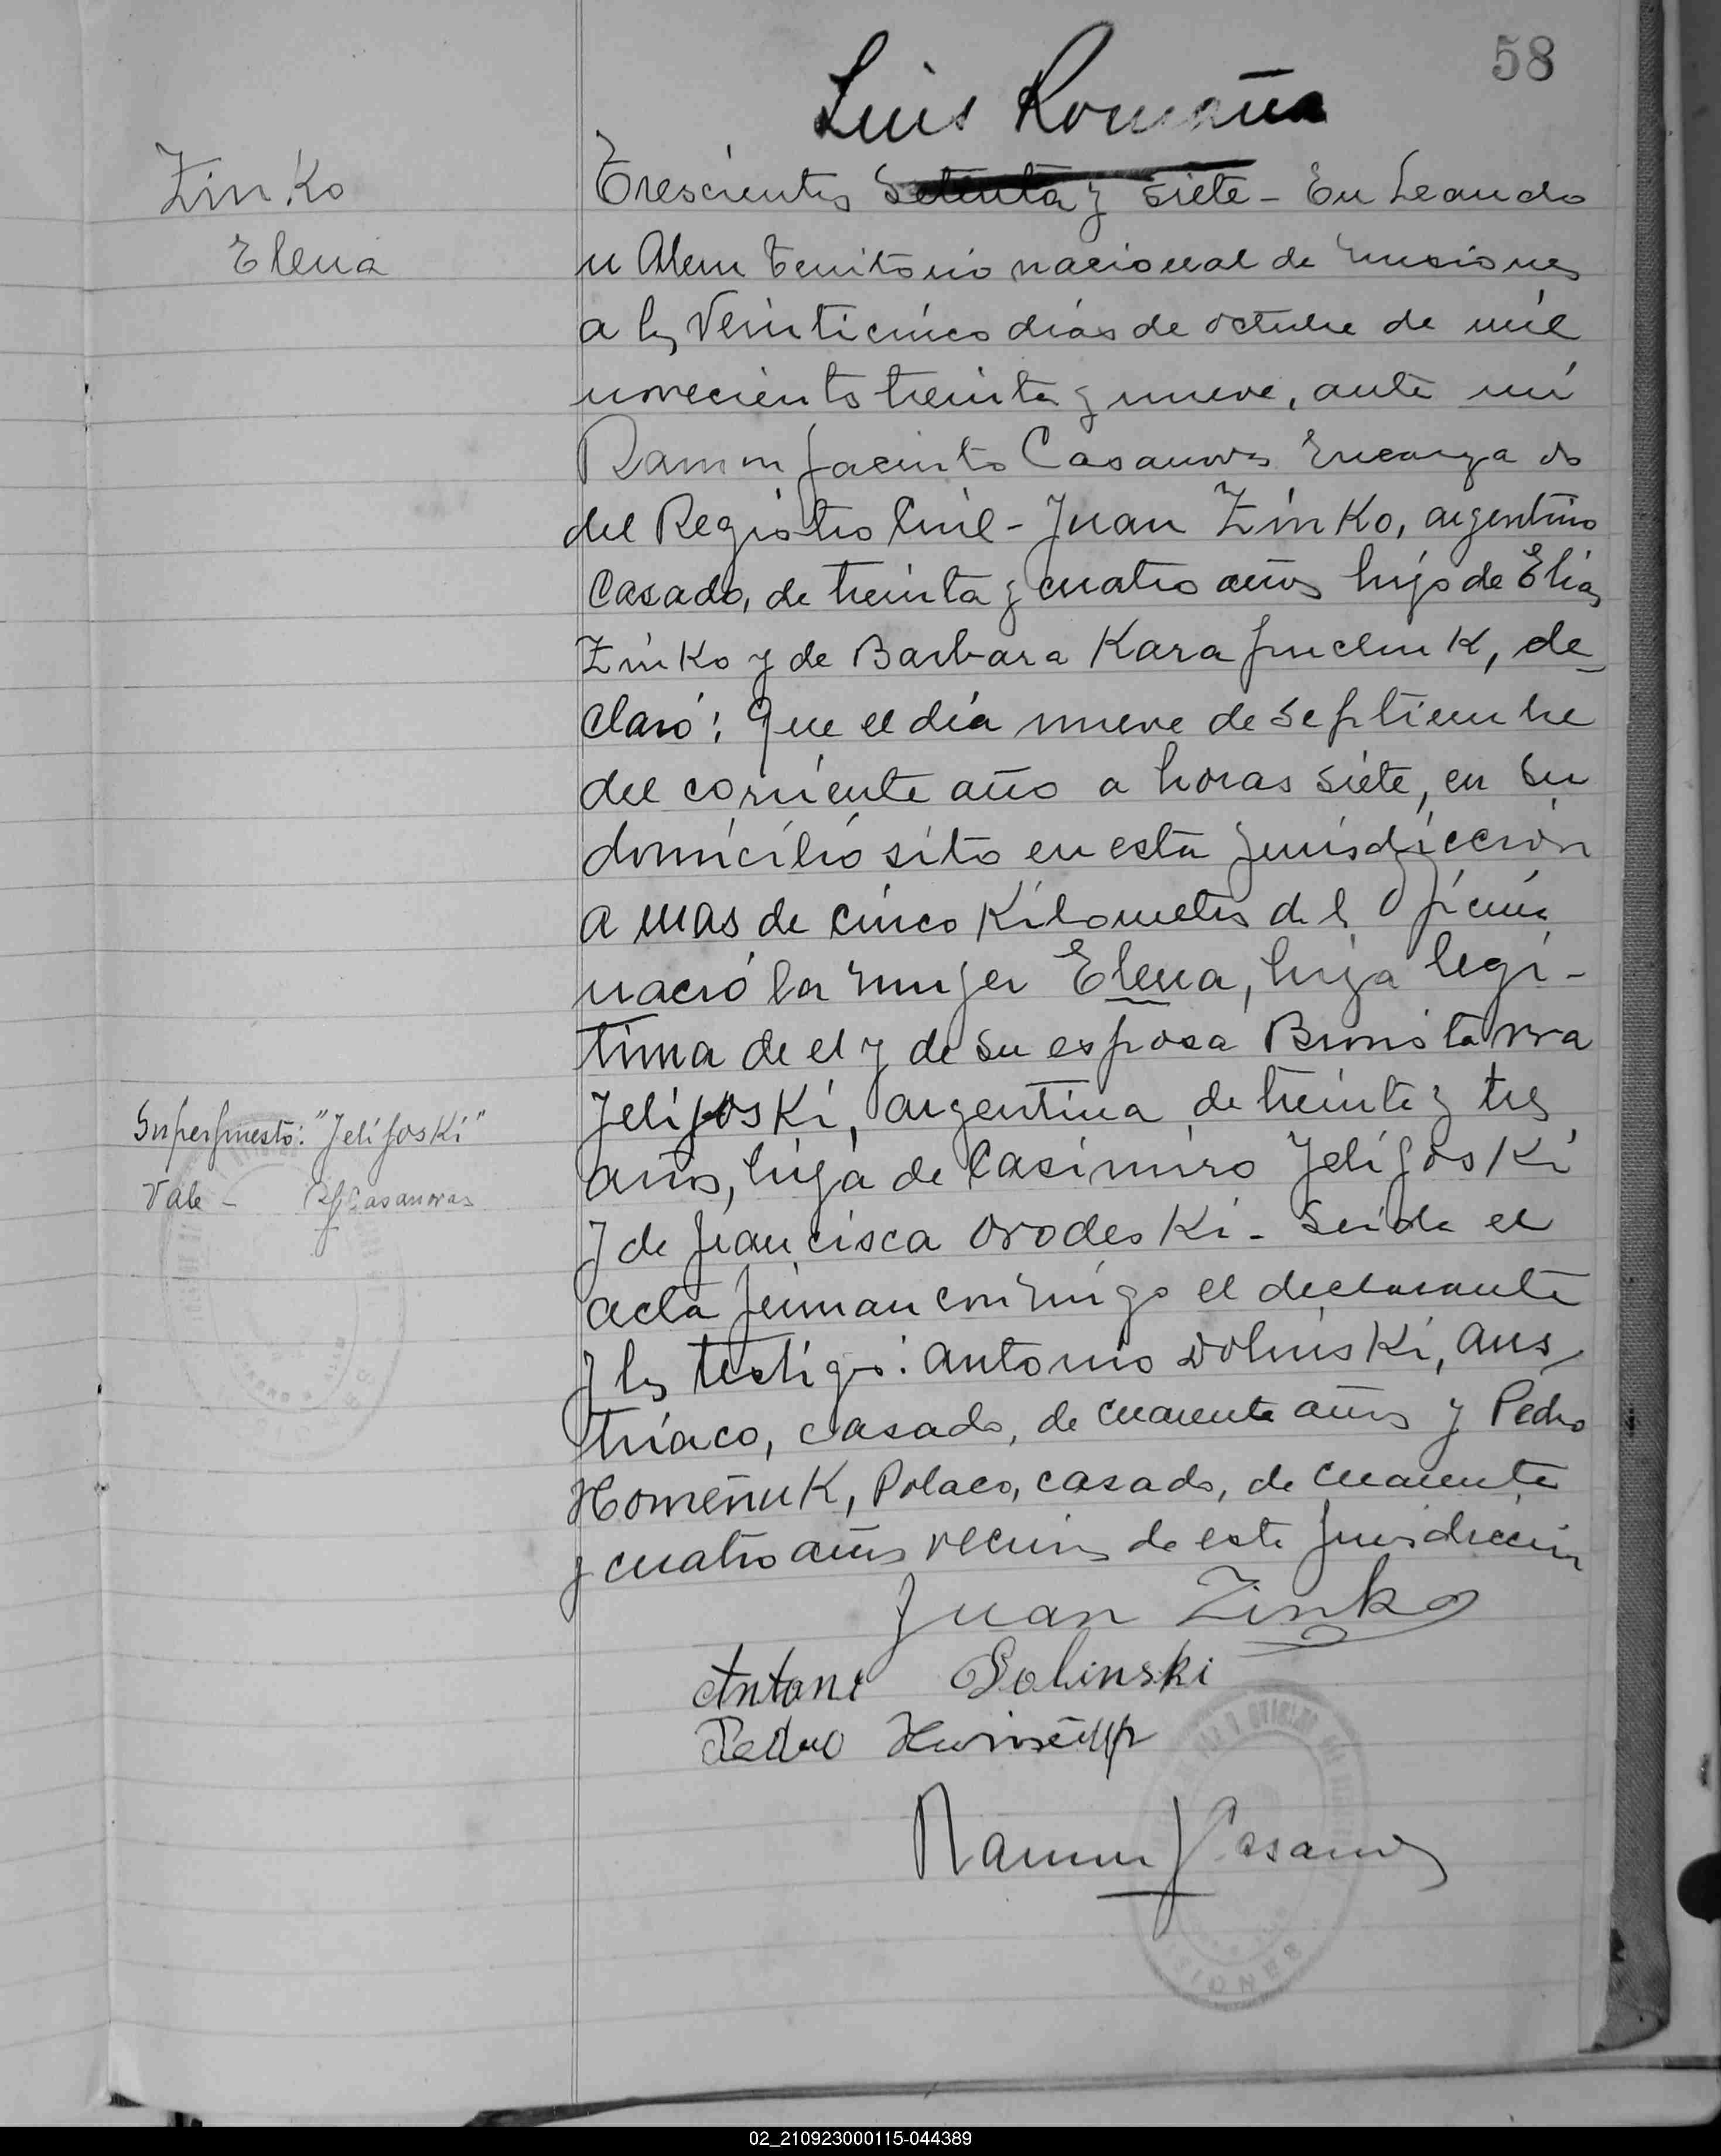 58
Luis Romaña
Zinko
Elena
Trescientos Setenta y siete - En Leandro
N Alem Territorio nacional de Misiones
a los Veinticinco dias de octubre de mil
novecientos treinta y nueve, ante mi
Ramon Jacinto Casanovas Encargado
del Registro Civil - Juan Zinko, argentino
Casado, de treinta y cuatro años hijo de Elias
Zinko y de Barbara Karapuchuk, de-
claró: Que el día nueve de Septiembre
del corriente año a horas siete, en su
domicilio sito en esta jurisdicción
a mas de cinco Kilometros de la Oficina
nació la mujer Elena, hija legi-
tima de el y de su esposa
Jelifoski, argentina, de treinta y tres
años, hija de Casimiro Jelifoski
y de Francisca Orodeski - Leida el
acta firman conmigo el declarante
y los testigos: Antonio Dolinski, Aus
triaco, casado, de cuarenta años y Pedro
Homeñuk, Polaco, casado, de cuarenta
y cuatro años vecinos de esta jurisdicción
Superpuesto: "Jelifoski"
Vale - RJCasanovas
Juan Zinko
Antoni Dolinski
Pedro
Ramon J Casanovas
MISIONES
02_210923000115-044389